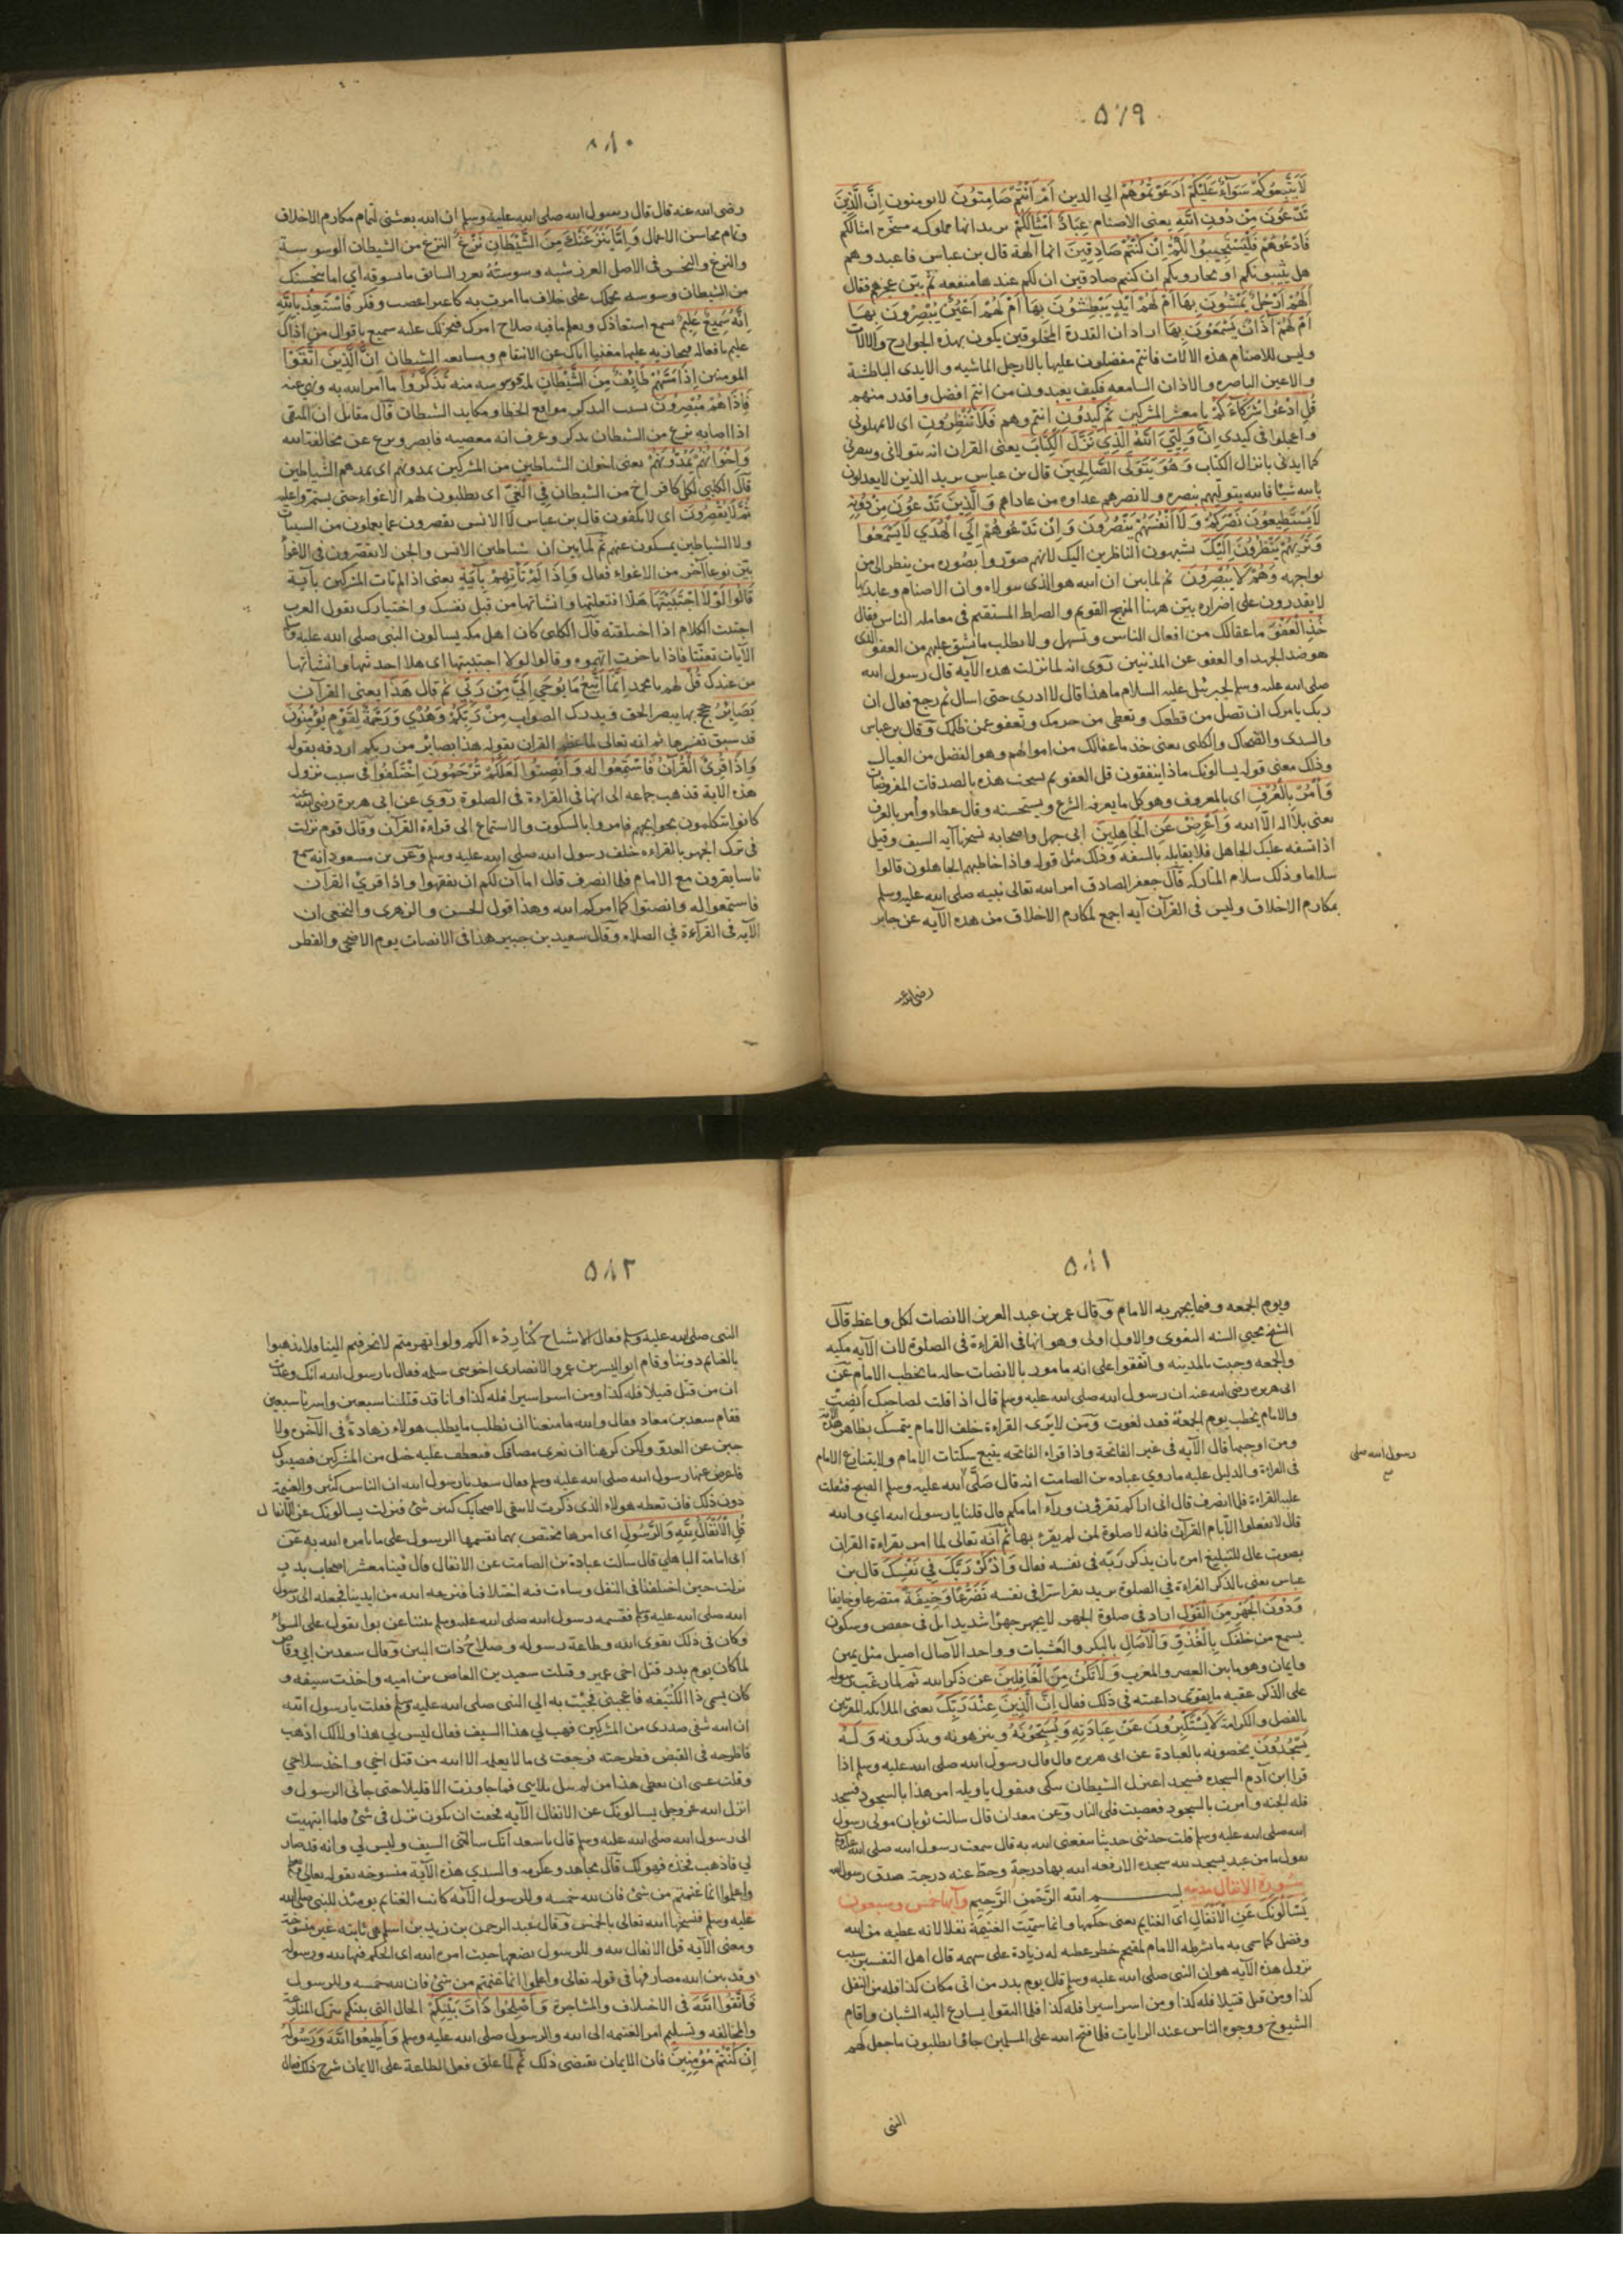 ٥٧٩
لَا يَتَّبِعُوكُمْ سَوَآءٌ عَلَيْكُمْ اَدَعَوْتُمُوهُمْ الي الدين اَمْ اَنْتُمْ صَامِتُونَ لايومنون اِنَّ الَّذِينَ
تَدْعُونَ مِنْ دُونِ اللّٰهِ يعنى الاصنام عِبَادٌ اَمْثَالُكُمْ يريد انها مملوكه مسخره امثالكم
فَادْعُوهُمْ فَلْيَسْتَجِيبُوا لَكُمْ اِنْ كُنْتُمْ صَادِقِينَ انها آلهة قال بن عباس فاعبدوهم
هل يثيبونكم او يجاروبكم ان كنتم صادقين ان لكم عندها منفعه ثم بيّن عجزهم فقال
اَلَهُمْ اَرْجُلٌ يَمْشُونَ بِهَا اَمْ لَهُمْ اَيْدٍ يَبْطِشُونَ بِهَا اَمْ لَهُمْ اَعْيُنٌ يُبْصِرُونَ بِهَا
اَمْ لَهُمْ آذَانٌ يَسْمَعُونَ بِهَا اراد ان القدرة المخلوقين يكون بهذه الجوارح والالات
وليس للاصنام هذه الالات فانتم مفضلون عليها بالارجل الماشيه والايدى الباطشة
والاعين الباصره والاذان السامعه فكيف يعبدون من انتم افضل واقدر منهم
قُلِ ادْعُوا شُرَكَآءَكُمْ يا معشر المشركين ثُمَّ كِيدُونِ انتم وهم فَلَا تُنْظِرُونِ اى لا تمهلونى
واعجلوا فى كيدى اِنَّ وَلِيِّيَ اللّٰهُ الَّذِي نَزَّلَ الْكِتَابَ يعنى القران انه يتولانى وينصرنى
كما ايدنى بانزال الكتاب وَهُوَ يَتَوَلَّى الصَّالِحِينَ قال بن عباس يريد الذين لا يعدلون
بالله شيا فالله يتوليهم بنصره ولا نصرهم عداوه من عاداهم وَالَّذِينَ تَدْعُونَ مِنْ دُونِهِ
لَا يَسْتَطِيعُونَ نَصْرَكُمْ وَلَا اَنْفُسَهُمْ يَنْصُرُونَ وَاِنْ تَدْعُوهُمْ اِلَى الْهُدَي لَا يَسْمَعُوا
وَتَرٰيهُمْ يَنْظُرُونَ اِلَيْكَ يشبهون الناظرين اليك لانهم صوّروا بصوره من ينظر الى من
يواجهه وَهُمْ لَا يُبْصِرُونَ ثم لما بين ان الله هو الذى يتولاه وان الاصنام وعابديها
لا يقدرون على اضراره بيّن ههنا المنهج القويم والصراط المستقيم فى معامله الناس فقال
خُذِ الْعَفْوَ ما عفا لك من افعال الناس وتسهل ولا تطلب ما يشق عليهم من العفو الذى
هو ضد الجهد او العفو عن المذنبين رَوى انه لما نزلت هذه الآيه قال رسول الله
صلى الله عليه وسلم لجبرئيل عليه السلام ما هذا قال لا ادري حتى اسال ثم رجع فقال ان
ربك يامرك ان تصل من قطعك وتعطى من حرمك وتعفو عمن ظلمك وَقال بن عباس
والسدى والضحاك والكلبى يعنى خذ ما عفا لك من اموالهم وهو الفضل من العيال
وذلك معنى قوله يسالونك ماذا ينفقون قل العفو ثم نسخت هذه بالصدقات المفروضات
وَاْمُرْ بِالْعُرْفِ اى بالمعروف وهو كل ما يعرفه الشرع ويستحسنه وقال عطاء وأمر بالعرف
يعنى بلا اله الا الله وَاَعْرِضْ عَنِ الْجَاهِلِينَ ابى جهل واصحابه نسختها آيه السيف وقيل
اذا تسفه عليك الجاهل فلا يقابله بالسفه وَذلك مثل قوله واذا خاطبهم الجاهلون قالوا
سلاما وذلك سلام المتاركه قَال جعفر الصادق امر الله تعالى نبيه صلى الله عليه وسلم
بمكارم الاخلاق وليس فى القرآن آيه اجمع لمكارم الاخلاق من هذه الآيه عن جابر
رضى الله عنه
٥٨٠
رضى الله عنه قال قال رسول الله صلى الله عليه وسلم ان الله بعثنى لتمام مكارم الاخلاق
وتمام محاسن الاعمال وَاِمَّا يَنْزَغَنَّكَ مِنَ الشَّيْطَانِ نَزْغٌ النزغ من الشيطان الوسوسة
والنزغ والنخس فى الاصل الغرز شبه وسوسته بغرز السائق ما يسوقه اى اما ينخسنك
من الشيطان وسوسه تحملك على خلاف ما امرت به كاعتراء غضب وفكر فَاسْتَعِذْ بِاللّٰهِ
اِنَّهُ سَمِيعٌ عَلِيمٌ يسمع استعاذتك ويعلم ما فيه صلاح امرك فيحملك عليه سميع باقوال من اذاك
عليم بافعاله فيجازيه عليها مغنيا اياك عن الانتقام ومتابعه الشيطان اِنَّ الَّذِينَ اتَّقَوْا
المومنين اِذَا مَسَّهُمْ طَائِفٌ مِنَ الشَّيْطَانِ لمة وسوسه منه تَذَكَّرُوا ما امر الله به ونهى عنه
فَاِذَا هُمْ مُبْصِرُونَ بسبب التذكر مواقع الخطا ومكايد الشيطان قَال مقاتل ان المتقى
اذا اصابه نزغ من الشيطان تذكر وعرف انه معصيه فابصر ونزع عن مخالفة الله
وَاِخْوَانُهُمْ يَمُدُّونَهُمْ يعنى اخوان الشياطين من المشركين يمدونهم اى يمدهم الشياطين
قَال الكلبى لكل كافر اخ من الشيطان فِي الْغَيِّ اى يطلبون لهم الاغواء حتى يستمروا عليه
ثُمَّ لَا يُقْصِرُونَ اى لا يكفون قال بن عباس لا الانس يقصرون عما يعملون من السيئات
ولا الشياطين يمسكون عنهم ثم لما بين ان شياطين الانس والجن لا يقصّرون فى الاغواء
بيّن نوعا آخر من الاغواء فقال وَاِذَا لَمْ تَأْتِهِمْ بِآيَةٍ يعنى اذا لم تات المشركين بآية
قَالُوا لَوْلَا اجْتَبَيْتَهَا هلا افتعلتها وانشاتها من قبل نفسك واختيارك يقول العرب
اجتبيت الكلام اذا اختلقته قَال الكلبى كان اهل مكه يسالون النبى صلى الله عليه وسلم
الآيات تعنّتا فاذا تاخرت اتهموه وقالوا لولا اجتبيتها اى هلا احدثتها وانشأتها
من عندك قُلْ لهم يا محمد اِنَّمَا اَتَّبِعُ مَا يُوحَى اِلَيَّ مِنْ رَبِّي ثم قال هَذَا يعنى القرآن
بَصَائِرُ حجج بها يبصر الحق ويدرك الصواب مِنْ رَبِّكُمْ وَهُدًي وَرَحْمَةٌ لِقَوْمٍ يُؤْمِنُونَ
قد سبق تفسيرها ثم انه تعالى لما عظم القران بقوله هذا بصائر من ربكم اردفه بقوله
وَاِذَا قُرِئَ الْقُرْآنُ فَاسْتَمِعُوا لَهُ وَاَنْصِتُوا لَعَلَّكُمْ تُرْحَمُونَ اختلفوا فى سبب نزول
هذه الاية فذهب جماعه الى انها فى القراءة فى الصلوة رَوى عن ابى هريرة رضى الله عنه
كانوا يتكلمون بحوايجهم فامروا بالسكوت والاستماع الى قراءة القرآن وَقال قوم نزلت
فى ترك الجهر بالقراءه خلف رسول الله صلى الله عليه وسلم وَعن بن مسعود انه سمع
ناسا يقرون مع الامام فلما انصرف قال اما آن لكم ان تفقهوا واذا قرئ القرآن
فاستمعوا له وانصتوا كما امركم الله وهذا قول الحسن والزهرى والنخعى ان
الآيه فى القرآءة في الصلاه وَقال سعيد بن جبير هذا فى الانصات يوم الاضحى والفطر
٥٨١
ويوم الجمعه وفيما يجهر به الامام وَقال عمر بن عبد العزيز الانصات لكل واعظ قَال
الشيخ محيي السنه البغوى والاول اولى وهو انها فى القراءة فى الصلوة لان الآيه مكيه
والجمعه وجبت بالمدينه واتفقوا على انه مامور بالانصات حاله ما يخطب الامام عَن
ابى هريره رضى الله عنه ان رسول الله صلى الله عليه وسلم قال اذا قلت لصاحبك اَنْصِتْ
والامام يخطب يوم الجمعة فقد لغوت وَمن لا يرَى القراءة خلف الامام يتمسك بظاهر هذه الآية
ومن اوجبها قال الآيه فى غير الفاتحة واذا قراء الفاتحه يتبع سكتات الإمام ولا ينازع الامام
فى القراءة والدليل عليه ما روي عباده بن الصامت انه قال صَلَّى الله عليه وسلم الصبح فثقلت
رسول الله صلى
صح
عليه القراءة فلما انصرف قال انى اراكم تقرؤن ورآء امامكم قال قلنا يا رسول الله اى والله
قال لا تفعلوا الا بام القرآن فانه لا صلوة لمن لم يقره بها ثم انه تعالى لما امر بقراءة القران
بصوت عال للتبليغ امره بان يذكر ربّه فى نفسه فقال وَاذْكُرْ رَبَّكَ فِي نَفْسِكَ قال بن
عباس يعنى بالذكر القراءة في الصلوة يريد يقرا سرا فى نفسه تَضَرُّعًا وَخِيفَةً متضرعا وخايفا
وَدُونَ الْجَهْرِ مِنَ الْقَوْلِ اراد فى صلوة الجهر لا يجهر جهرًا شديدا بل فى خفض وسكون
يسمع من خلفك بِالْغُدُوِّ وَالْآصَالِ بالبكر والعشيات وواحد الآصال اصيل مثل يمين
وايمان وهو ما بين العصر والمغرب وَلَا تَكُنْ مِنَ الْغَافِلِينَ عن ذكر الله ثم لما رغب رسوله
على الذكر عقبه ما يقوى داعيته فى ذلك فقال اِنَّ الَّذِينَ عِنْدَ رَبِّكَ يعنى الملائكه المقربين
بالفضل والكرامة لَا يَسْتَكْبِرُونَ عَنْ عِبَادَتِهِ وَيُسَبِّحُونَهُ وينزهونه ويذكرونه وَلَهُ
يَسْجُدُونَ يخصونه بالعبادة عن ابى هريره قال قال رسول الله صلى الله عليه وسلم اذا
قرا ابن آدم السجده فسجد اعتزل الشيطان يبكى فيقول يا ويله امر هذا بالسجود فسجد
فله الجنه وامرت بالسجود فعصيت فلى النار وَعن معدان قال سالت ثوبان مولى رسول
الله صلى الله عليه وسلم قلت حدثنى حديثا ينفعنى الله به قال سمعت رسول الله صلى الله عليه وسلم
يقول ما من عبد يسجد لله سجده الا رفعه الله بها درجة وحط عنه درجة صدق رسول الله
سُورة الانفال مدنيه بسم الله الرَّحْمٰنِ الرَّحِيمِ وآيها خمس وسبعون
يَسْاَلُونَكَ عَنِ الْاَنْفَالِ اى الغنايم يعنى حكمها وانما سمّيت الغنيمة نفلا لانه عطيه من الله
وفضل كما سمى به ما يشرطه الامام لمقتحم خطر عطيه له زيادة على سهمه قال اهل التفسير سبب
نزول هذه الآيه هو ان النبى صلى الله عليه وسلم قال يوم بدر من اتى مكان كذا فله من النفل
كذا ومن قتل قتيلا فله كذا ومن اسر اسيرا فله كذا فلما التقوا تسارع اليه الشبان واقام
الشيوخ ووجوه الناس عند الرايات فلما فتح الله على المسلمين جاؤا يطلبون ما جعل لهم
النبى
٥٨٢
النبى صلى الله عليه وسلم فقال الاشياخ كُنا رِدْء الكم ولو انهزمتم لانحرفتم الينا فلا تذهبوا
بالغنايم دوننا وقام ابو اليسر بن عمرو الانصارى اخو بنى سلمه فقال يا رسول الله انك وعدت
ان من قتل قتيلا فله كذا ومن اسر اسيرا فله كذا وانا قد قتلنا سبعين واسرنا سبعين
فقام سعد بن معاذ فقال والله ما منعنا ان نطلب ما يطلب هولاء زهادة فى الآخره ولا
جبن عن العدو ولكن كرهنا ان نعرى مصافك فيعطف عليه خيل من المشركين فيصيبوك
فاعرض عنها رسول الله صلى الله عليه وسلم فقال سعد يا رسول الله ان الناس كثير والغنيمة
دون ذلك فان تعطه هولاء الذى ذكرت لا يبقى لاصحابك كبير شئ فنزلت يسالونك عن الانفال
قُلِ الْاَنْفَالُ لِلّٰهِ وَالرَّسُولِ اى امرها مختص بهما يقسمها الرسول على ما يامره الله به عَن
ابى امامة الباهلي قال سالت عبادة بن الصامت عن الانفال قال فينا معشر اصحاب بدر
نزلت حين اختلفنا فى النفل وساءت فيه اخلاقنا فنزعه الله من ايدينا فجعله الى رسول
الله صلى الله عليه وسلم فقسمه رسول الله صلى الله عليه وسلم بيننا عن بواء يقول على السواء
وكان فى ذلك تقوى الله وطاعة رسوله وصلاحُ ذات البين وَقال سعد بن ابى وقاص
لما كان يوم بدر قتل اخى عمير وقتلت سعيد بن العاص بن اميه واخذت سيفه و
كان يسمى ذا الكُتَيفه فاعجبنى فجئت به الى النبى صلى الله عليه وسلم فقلت يا رسول الله
ان الله شفى صدرى من المشركين فهب لي هذا السيف فقال ليس لي هذا ولا لك اذهب
فاطرحه فى القبض فطرحته فرجعت بى ما لا يعلمه الا الله من قتل اخي واخذ سلاحي
وقلت عسى ان يعطى هذا من لم يبل بلايى فما جاوزت الا قليلا حتى جانى الرسول و
انزل الله عز وجل يسالونك عن الانفال الآيه فخفت ان يكون نزل فى شئ فلما انتهيت
الى رسول الله صلى الله عليه وسلم قال يا سعد انك سالتنى السيف وليس لي وانه قد صار
لي فاذهب فخذه فهو لك قَال مجاهد وعكرمه والسدي هذه الآية منسوخه بقوله تعالى
واعلموا انما غنمتم من شئ فان لله خمسه وللرسول الآيه كانت الغنايم يومئذ للنبى صلى الله
عليه وسلم فنسخها الله تعالى بالخمس وَقال عبد الرحمن بن زيد بن اسلم هى ثابته غير منسوخة
ومعنى الآيه قل الانفال لله وللرسول يضعها حيث امره الله اى الحكم فيها لله ورسوله
وقد بين الله مصارفها فى قوله تعالى واعلموا انما غنمتم من شئ فان لله خمسه وللرسول
فَاتَّقُوا اللّٰهَ فى الاختلاف والمشاجرة وَاَصْلِحُوا ذَاتَ بَيْنِكُمْ الحال التى بينكم بترك المنازعة
والمخالفه وتسليم امر الغنيمه الى الله والرسول صلى الله عليه وسلم وَاَطِيعُوا اللّٰهَ وَرَسُولَهُ
اِنْ كُنْتُمْ مُؤْمِنِينَ فان الايمان يقتضى ذلك ثم لما علق فعل الطاعة على الايمان شرح ذلك فقال